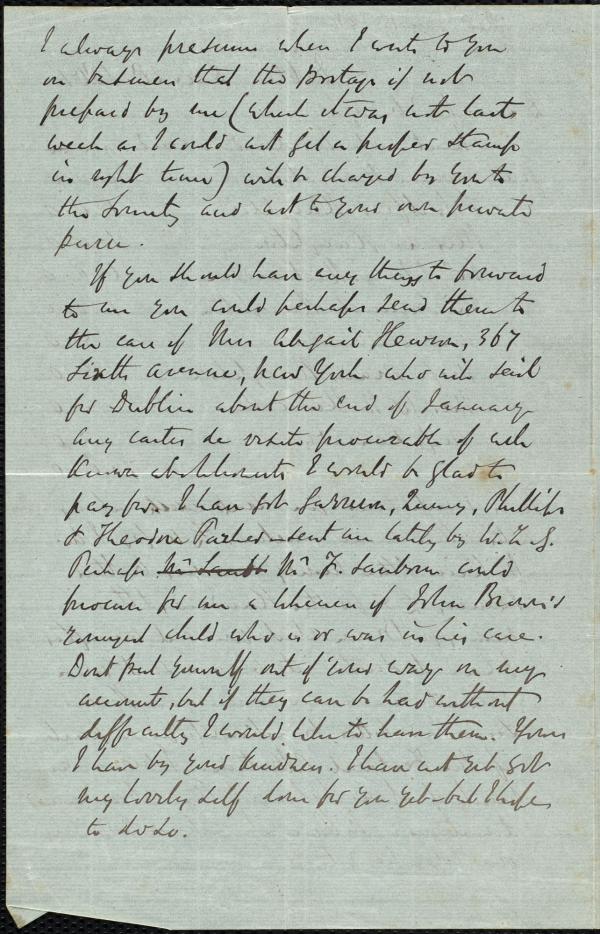 I always presume when I write to you
on business that the Postage if not
prepaid by me (which it was not last
week as I could not get a proper stamp
in right time) will be charged by you to
the Society and not to your own private
purse.
If you should have any things to forward
to me you could perhaps send them to
the care of Mrs Abigail Hewson, 367
Sixth avenue, New York who will sail
for Dublin about the end of January.
Any cartes de visite procurable of well
known abolitionists I would be glad to
pay for. I have got Garrison, Quincy, Phillips
& Theodore Parker—sent me lately by W.L.G.
Perhaps Mr F. Sanborn could
procure for me a likeness of John Brown's
youngest child who is or was in his care.
Dont put yourself out of your way on my
account, but if they can be had without
difficulty I would like to have them. Yours
I have by your kindness. I have not yet got
my lovely self done for you yet—but I hope
to do so.